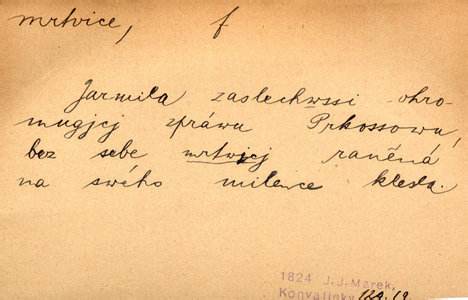 mrtvice, f
Jarmila zaslechwssi ohro-
mugjcj zpráwu Prkossowu,
bez sebe mrtwicj raněná
na swého milence klesla.
1824 J.J. Marek,
Konvalinky 124. 19.